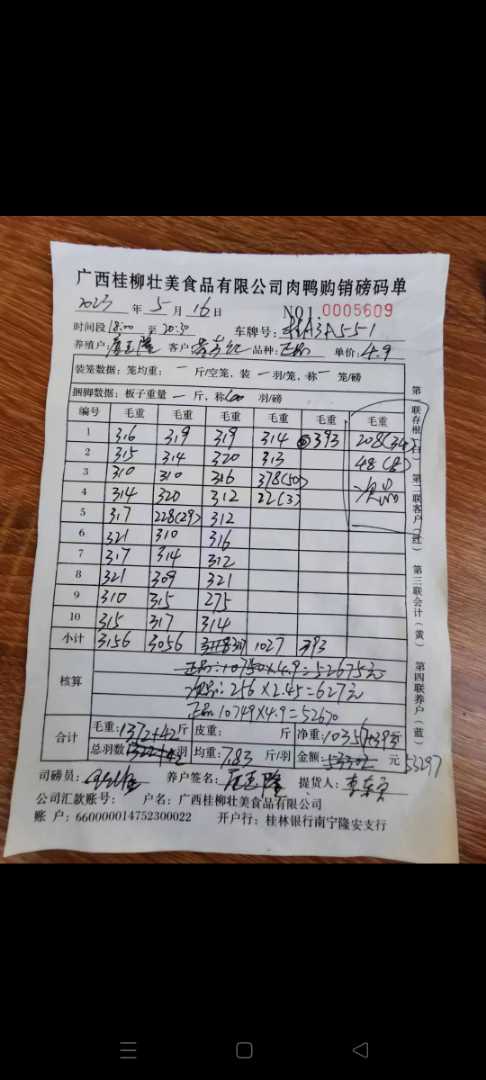 广西桂柳壮美食品有限公司肉鸭购销磅码单
2023 年 5 月 16 日 NO1. 0005609
时间段 18:00 至 20:30 车牌号: 桂A3A551
养殖户: 客户: 品种: 正品 单价: 4.9
装笼数据: 笼均重: 一 斤/空笼、装 一 羽/笼、称 一 笼/磅
捆脚数据: 板子重量 一 斤、称 羽/磅
编号 毛重 毛重 毛重 毛重 毛重 毛重
1 316 319 319 314 393 208(34)
2 315 314 320 313 48(8)
3 310 310 316 378(50) 次品
4 314 320 312 22(3)
5 317 228(29) 312
6 321 310 316
7 317 314 312
8 321 309 321
9 310 315 275
10 315 317 314
小计 3156 3056 1027 393
核算 正品:10750×4.9=52675元
次品:256×2.45=627元
正品 10749×4.9=52670
合计 毛重: 1372+42 斤 皮重: 斤 净重: 10357+393
总羽数 羽 均重: 7.83 斤/羽 金额: 53302 元 53297
司磅员: 养户签名: 提货人:
公司汇款账号: 户名: 广西桂柳壮美食品有限公司
账 户: 660000014752300022 开户行: 桂林银行南宁隆安支行
第一联存根(白) 第二联客户(红) 第三联会计(黄) 第四联养户(蓝)